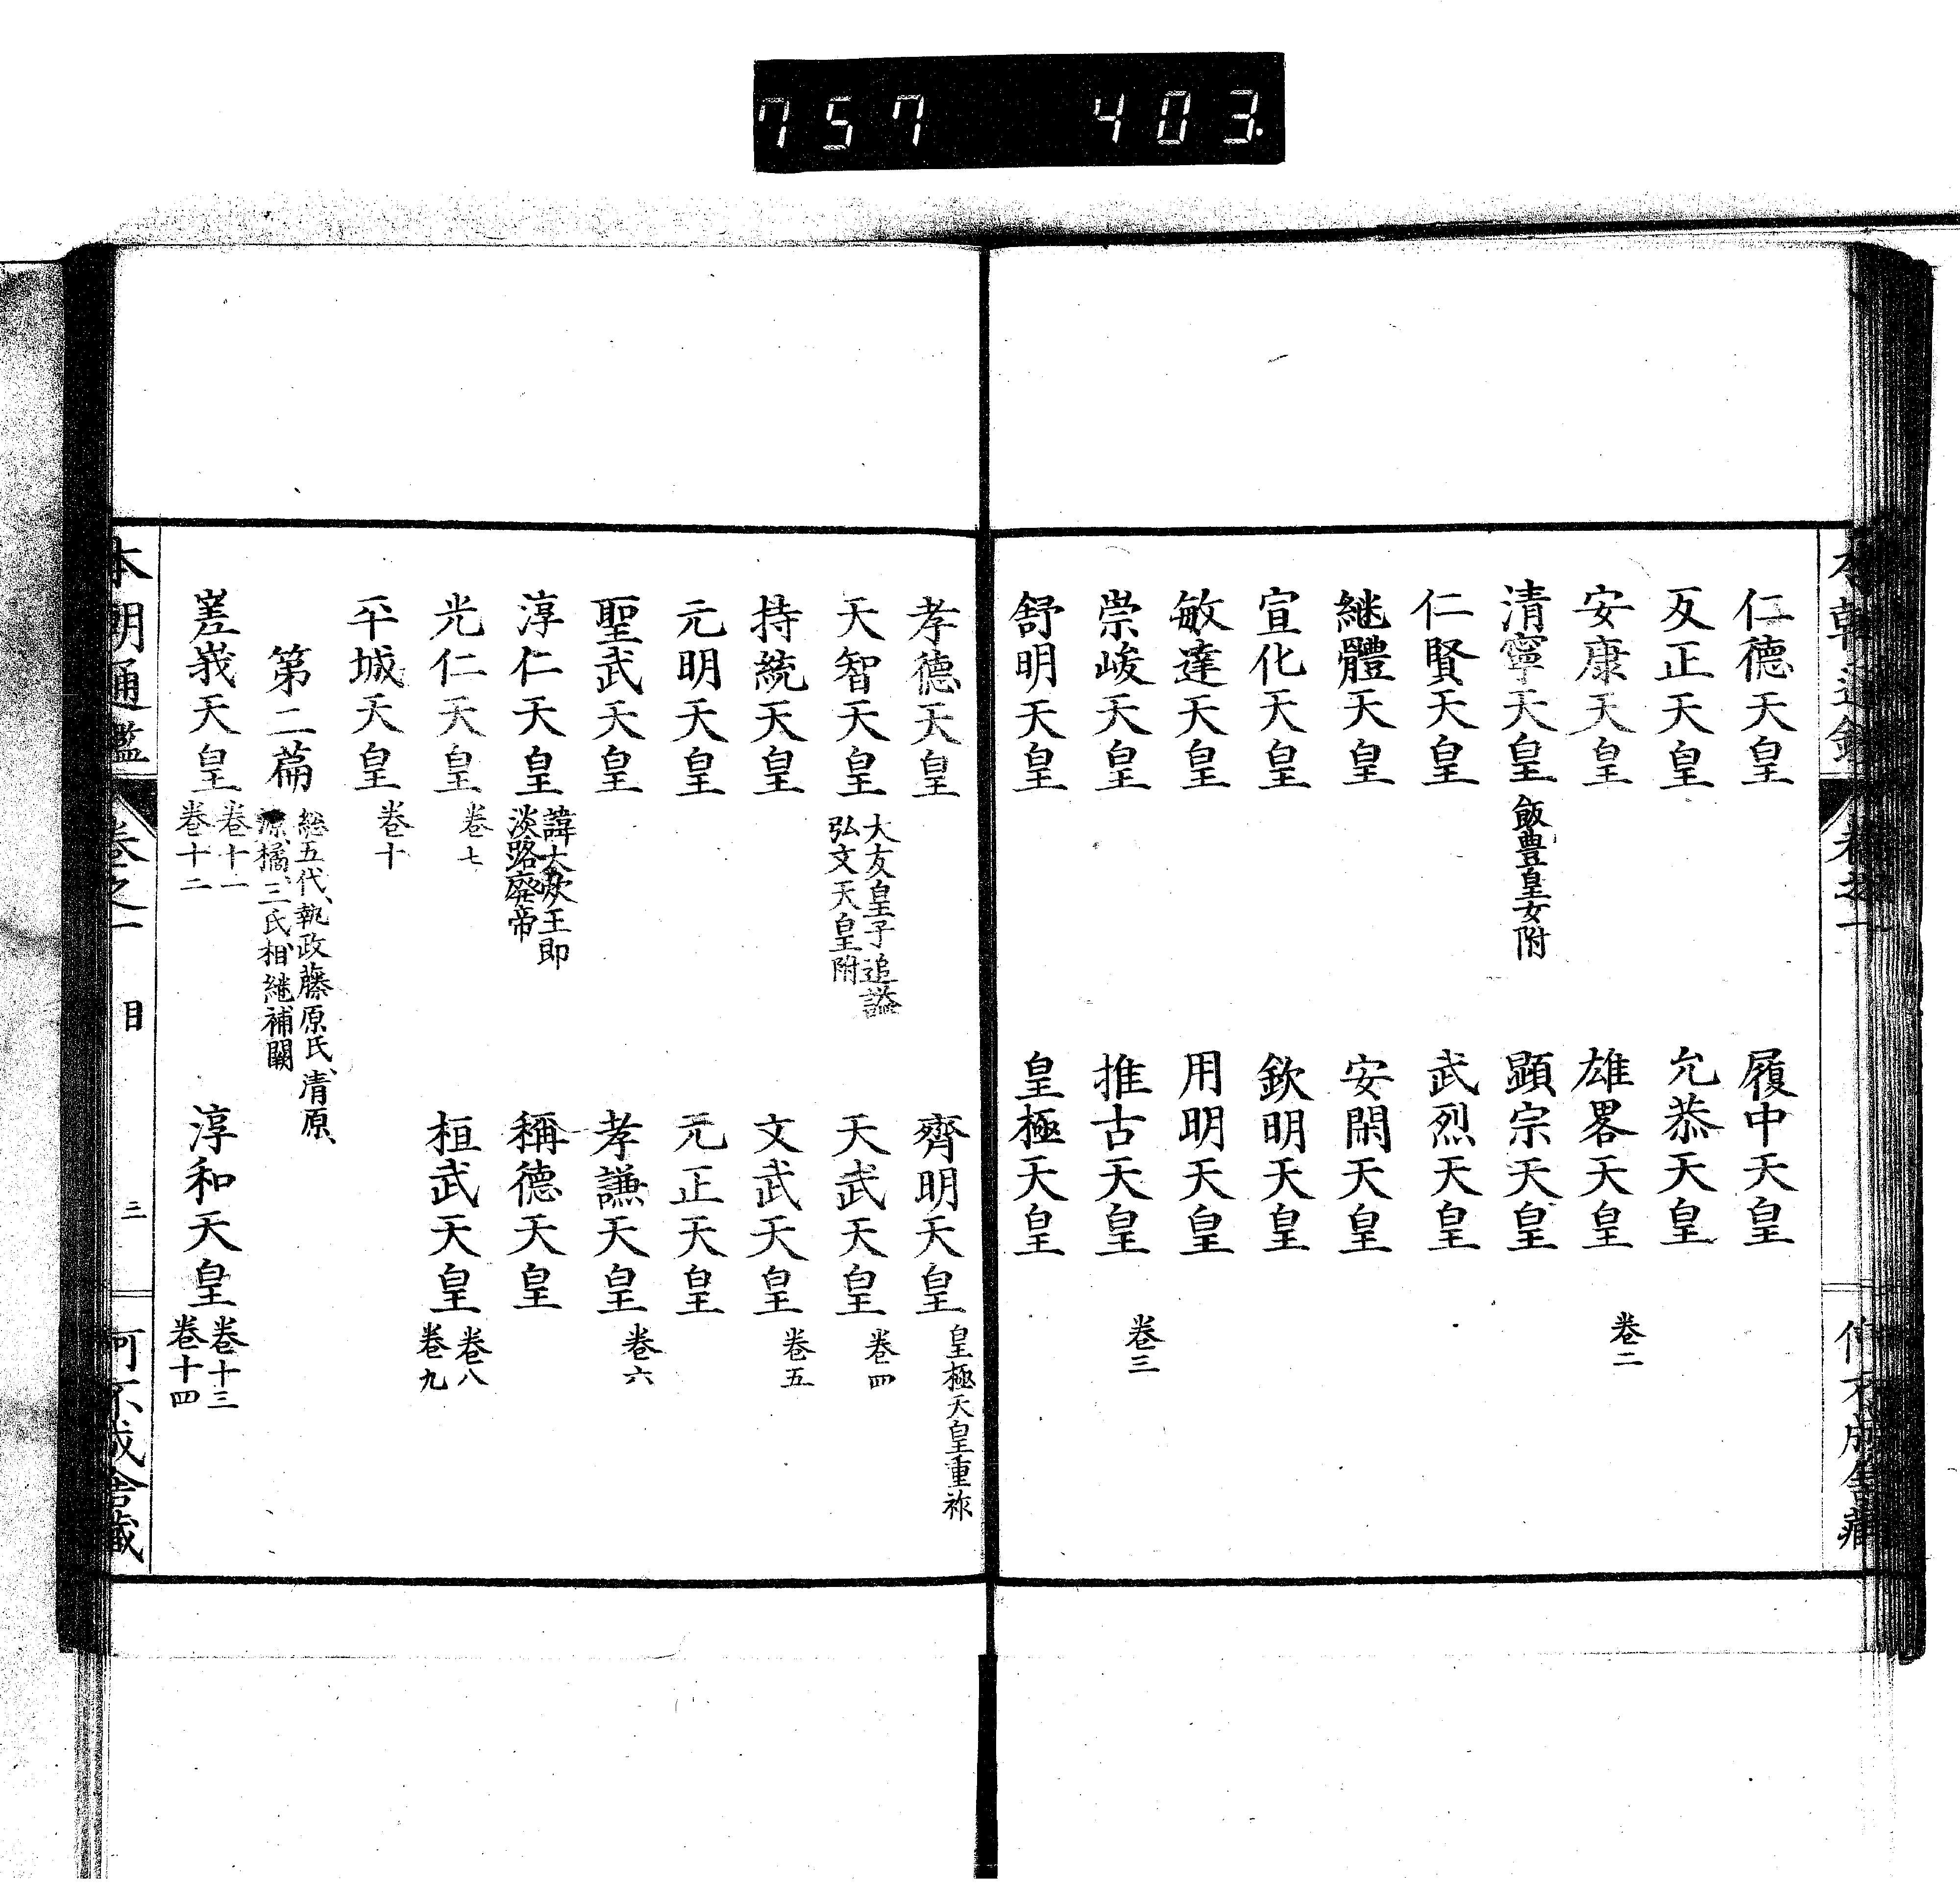 757 403.
仁德天皇 履中天皇
反正天皇 允恭天皇
安康天皇 雄畧天皇 卷二
清寧天皇 飯豊皇女附 顕宗天皇
仁賢天皇 武烈天皇
継體天皇 安閑天皇
宣化天皇 欽明天皇
敏達天皇 用明天皇
崇峻天皇 推古天皇 卷三
舒明天皇 皇極天皇
孝德天皇 齊明天皇 皇極天皇重祚
天智天皇 大友皇子追謚
弘文天皇附 天武天皇 卷四
持統天皇 文武天皇 卷五
元明天皇 元正天皇
聖武天皇 孝謙天皇 卷六
淳仁天皇 諱大炊王即
淡路廢帝 稱德天皇
光仁天皇 卷七 桓武天皇 卷八
卷九
平城天皇 卷十
第二篇 総五代、執政藤原氏、清原、
源、橘、三氏、相継補闕
嵳峩天皇 卷十一
卷十二 淳和天皇 卷十三
卷十四
本朝通鑑 卷之一 目 三